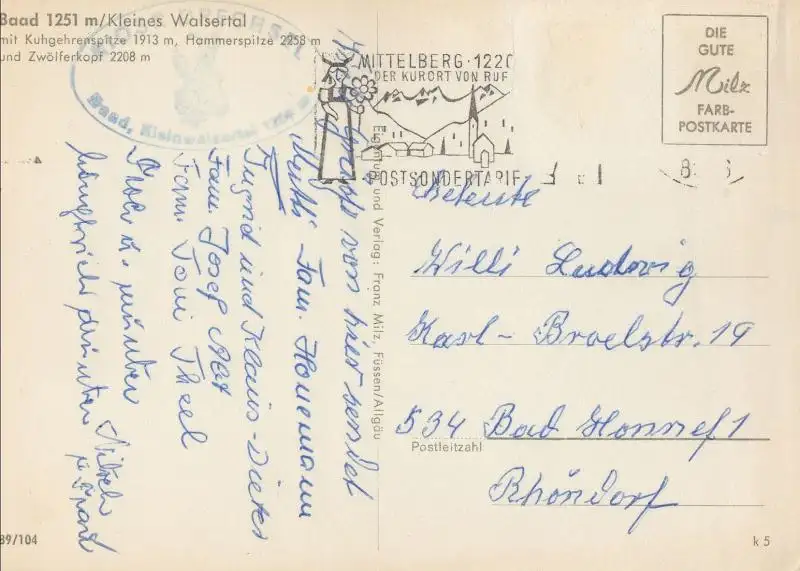 Baad 1251 m/Kleines Walsertal
mit Kuhgehrenspitze 1913 m, Hammerspitze 2258 m
und Zwölferkopf 2208 m
Baad, Kleinwalsertal
MITTELBERG · 1220
DER KURORT VON RUF
POSTSONDERTARIF
DIE
GUTE
Milz
FARB-
POSTKARTE
Grüße von hier sendet
Mutti Fam. Honemann
Ingrid und Klaus-Dieter
Fam. Josef Abt
Fam. Toni Theel
Eigentum und Verlag: Franz Milz, Füssen/Allgäu
Willi Ludwig
Karl-Broelstr. 19
534 Bad Honnef 1
Postleitzahl
Rhöndorf
89/104
k 5